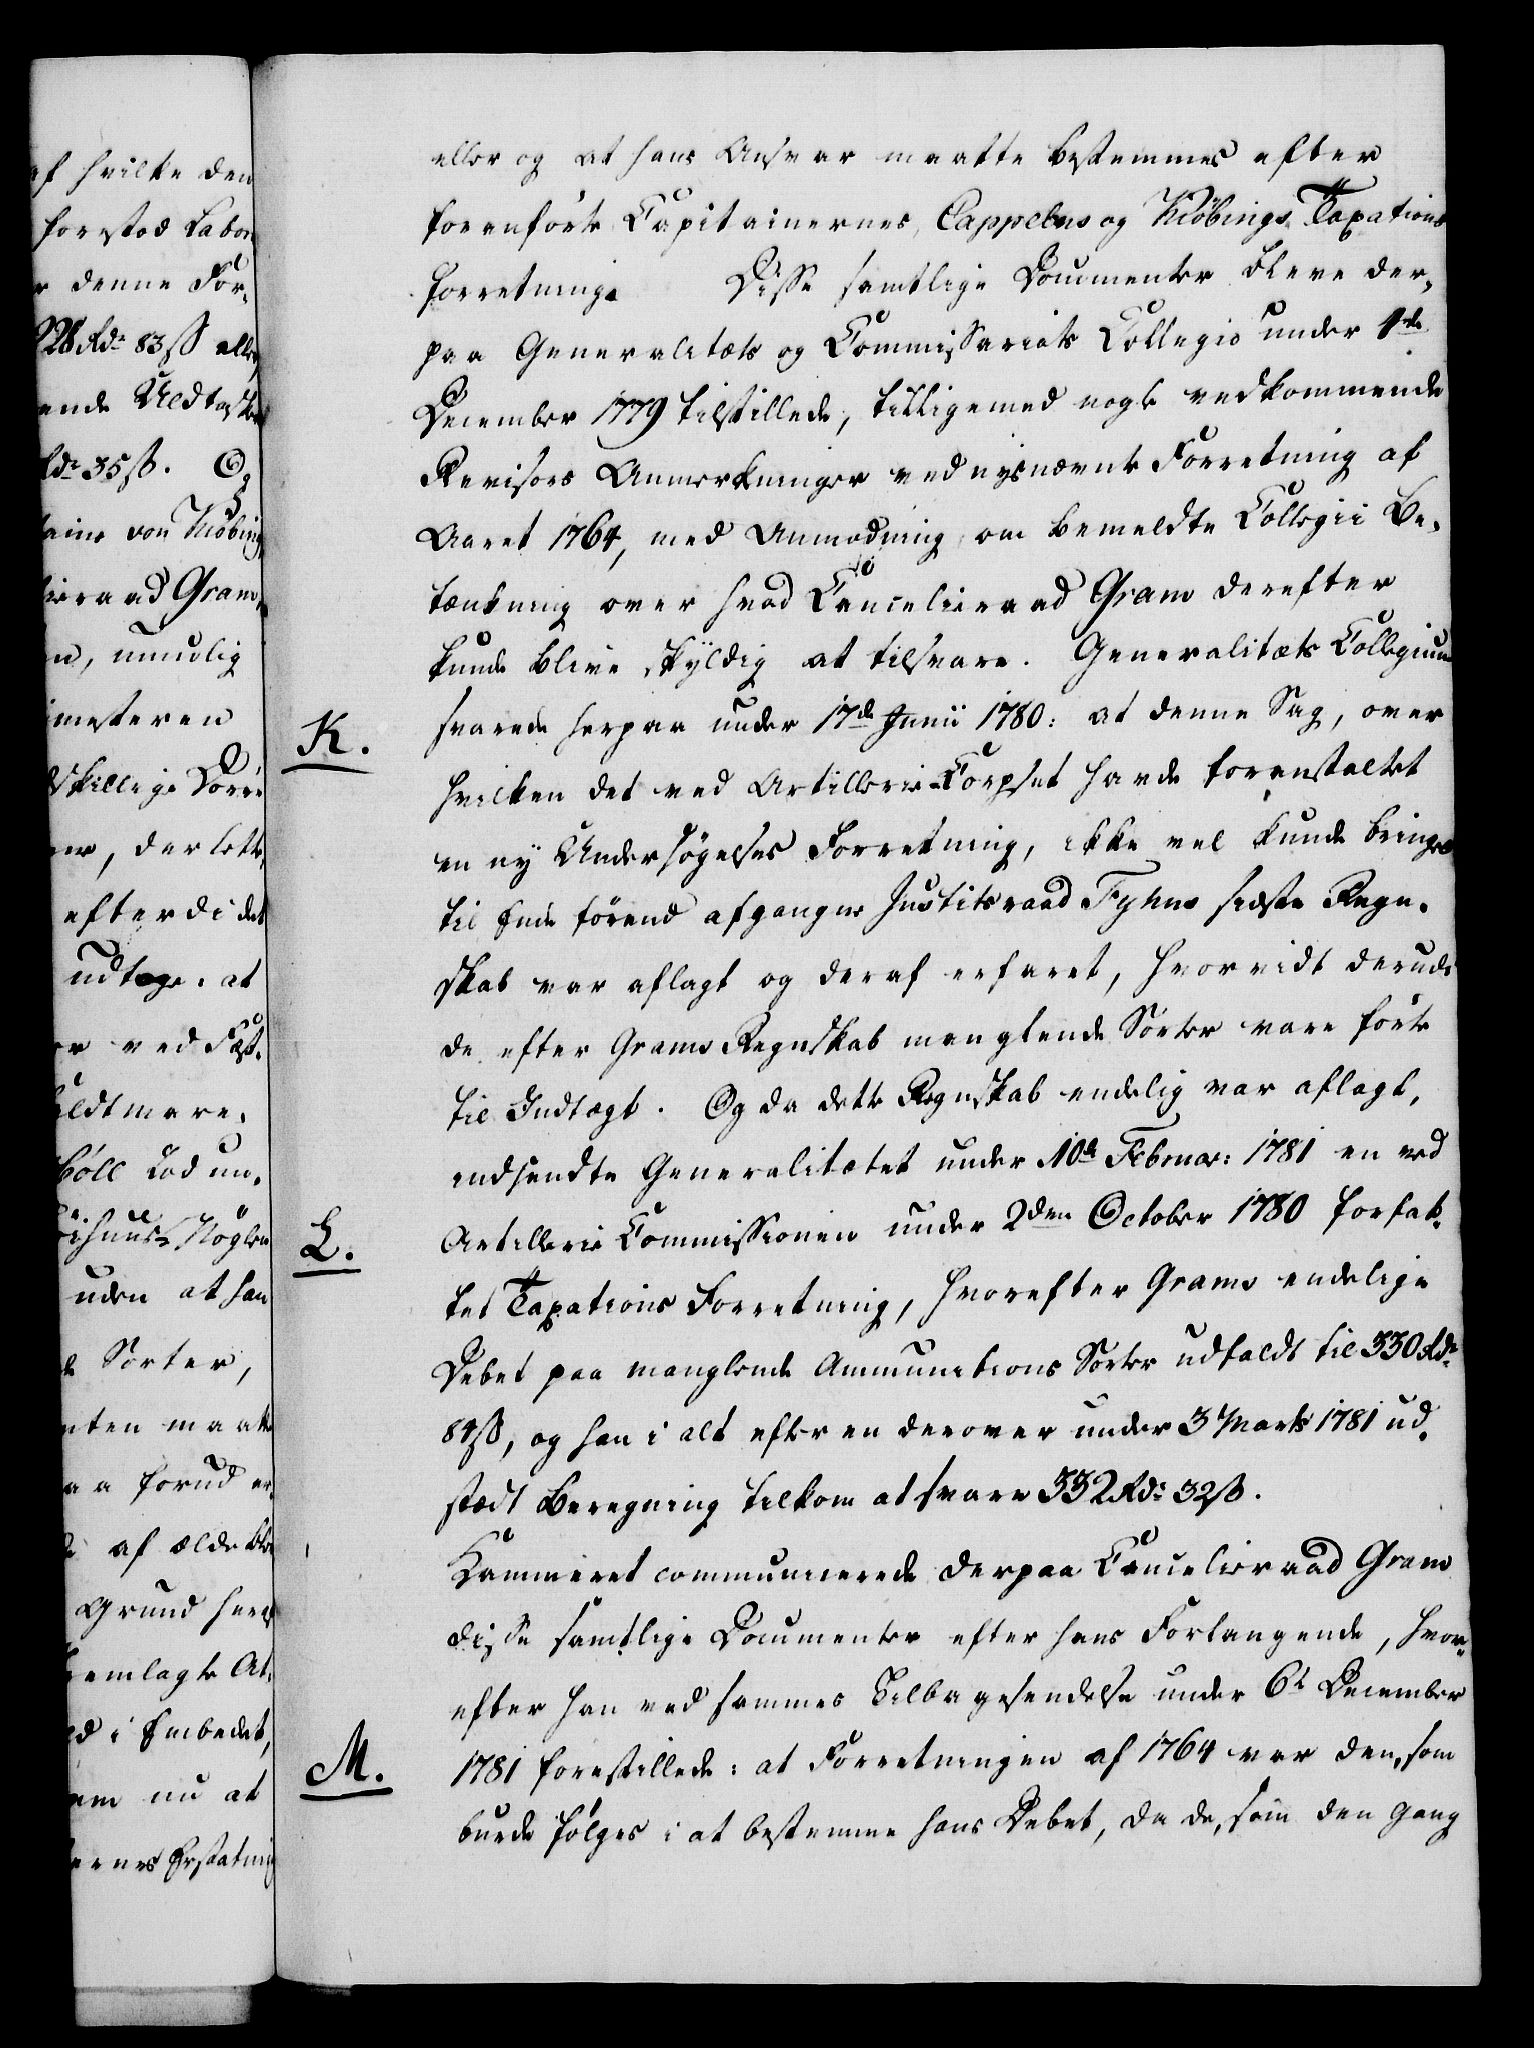 af hvilke den
forstod Labor
r denne For-
228 Rd. 83 ß eller
ende Uldtoskes
Rd. 35 ß. Og
taine von Kiöbing
lieraad Gram,
n, umulig
imesteren
dskillige Dörre
er, der lette,
efterdi det
udtoge. at
or ved Fæst-
uldt mare,
böll Lod un-
ihuus Nöglen
uden at han
de Sorter,
nten maatte
aa forud er-
af ælde ble
Grund herer
emlagte At-
ed i Embedet,
em nu at
ernes Erstatning
eller og at hans Ansvar maatte bestemmes efter
foranförte Capitainernes, Cappelens og Kiöbings Taxations
Forretning. Disse samtlige Documenter bleve der-
paa Generalitets og Commissariats Collegio under 4de
December 1779 tilstillede, tilligemed nogle vedkommende
Revisors Anmerkninger ved nysnævnte Forretning af
Aaret 1764, med Anmodning om bemeldte Collegii Be-
tænkning over hvad Cancelieraad Gram derefter
kunde blive skyldig at tilsvare. Generalitets Collegium
K. svarede herpaa under 17de Junii 1780: at denne Sag, over
hvilken det ved Artillerie-Corpset havde foranstaltet
en ny Undersögelses Forretning, ikke vel kunde bringes
til Ende förend afgangne Justitsraad Fyhns sidste Regn-
skab var aflagt og deraf erfaret, hvorvidt derudi
de efter Grams Regnskab manglende Sorter vare förte
til Indtægt. Og da dette Regnskab endelig var aflagt,
indsendte Generalitetet under 10de Februar: 1781 en ved
L. Artillerie Commissionen under 2den October 1780 forfat-
tet Taxations Forretning, hvorefter Grams endelige
Debet paa manglende Ammunitions Sorter udfaldt til 330 Rd.
84 ß, og han i alt efter en derover under 3 Marts 1781 ud-
stædt Beregning tilkom at svare 332 Rd. 32 ß.
Kammeret communicerede derpaa Cancelieraad Gram
disse samtlige Documenter efter hans Forlangende, hvor-
efter han ved sammes Tilbagesendelse under 6te December
M. 1781 forestillede: at Forretningen af 1764 var den, som
burde fölges i at bestemme hans Debet, da de, som den Gang